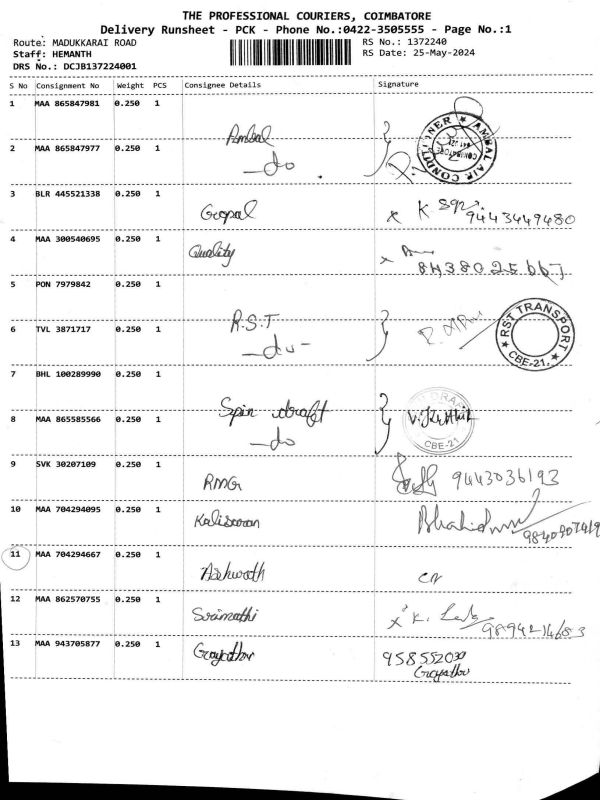 THE PROFESSIONAL COURIERS, COIMBATORE
Delivery Runsheet - PCK - Phone No.:0422-3505555 - Page No.:1
Route: MADUKKARAI ROAD
RS No.: 1372240
Staff: HEMANTH
RS Date: 25-May-2024
DRS No.: DCJB137224001
S No Consignment No Weight PCS Consignee Details Signature
1 MAA 865847981 0.250 1
Ambal
2 MAA 865847977 0.250 1
-do
AMBAL AIR CONDITIONER
3 BLR 445521338 0.250 1
Gopal x K 9443449480
4 MAA 300540695 0.250 1
Quality x
5 PON 7979842 0.250 1
R.S.T
6 TVL 3871717 0.250 1
-do-
RST TRANSPORT
CBE-21.
7 BHL 100289990 0.250 1
Spin draft
8 MAA 865585566 0.250 1
-do
CBE-21
9 SVK 30207109 0.250 1
RMG 9443036193
10 MAA 704294095 0.250 1
Kaliswaran
11 MAA 704294667 0.250 1
Ashwath
12 MAA 862570755 0.250 1
Srimathi x K.
13 MAA 943705877 0.250 1
Gayathri
Gayathri